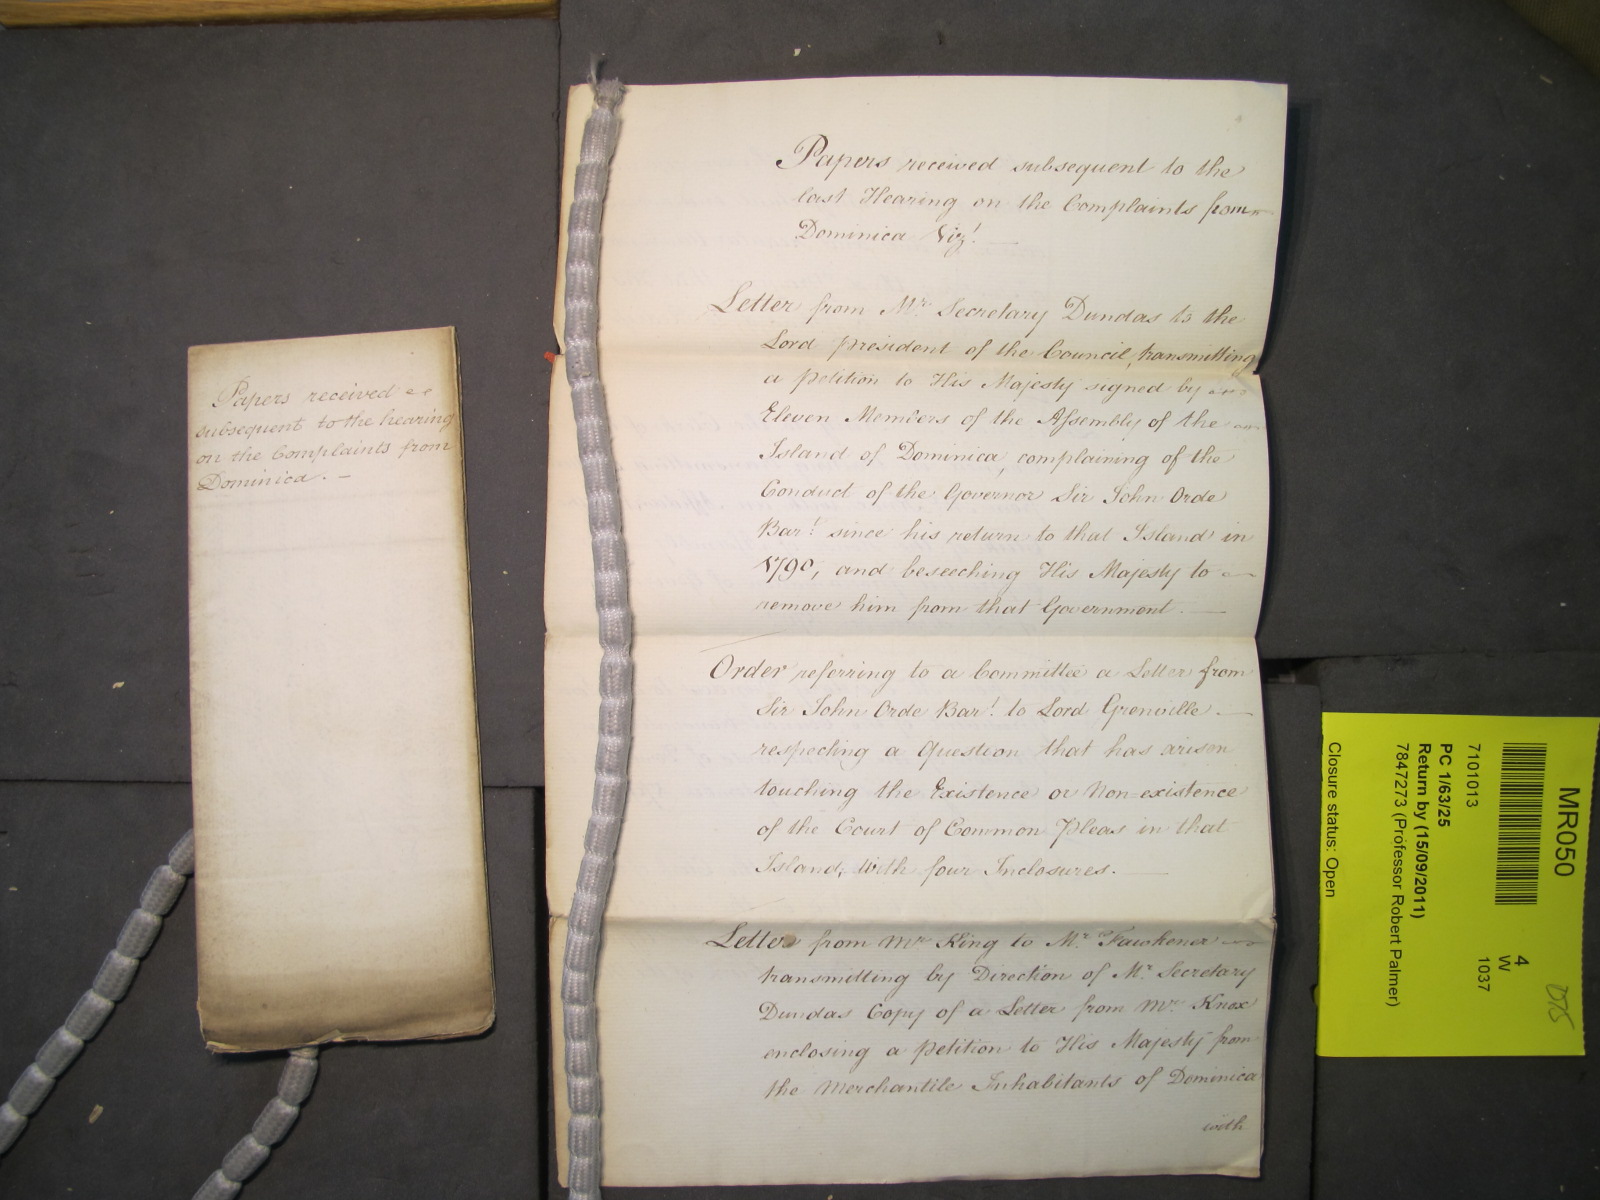 Papers received
subsequent to the hearing
on the Complaints from
Dominica. —
Papers received subsequent to the
last Hearing on the Complaints from
Dominica Vizt. —
Letter from Mr. Secretary Dundas to the
Lord President of the Council, transmitting
a Petition to His Majesty signed by
Eleven Members of the Assembly of the
Island of Dominica, complaining of the
Conduct of the Governor Sir John Orde
Bart. since his return to that Island in
1790, and beseeching His Majesty to
remove him from that Government. —
Order referring to a Committee a Letter from
Sir John Orde Bart. to Lord Grenville —
respecting a Question that has arisen
touching the Existence or Non=existence
of the Court of Common Pleas in that
Island, with four Inclosures. —
Letter from Mr. King to Mr. Fawkener —
transmitting by Direction of Mr. Secretary
Dundas Copy of a Letter from Mr. Knox
enclosing a Petition to His Majesty from
the Merchantile Inhabitants of Dominica
with
MR050
7101013
4
W
1037
PC 1/63/25
Return by (15/09/2011)
7847273 (Professor Robert Palmer)
Closure status: Open